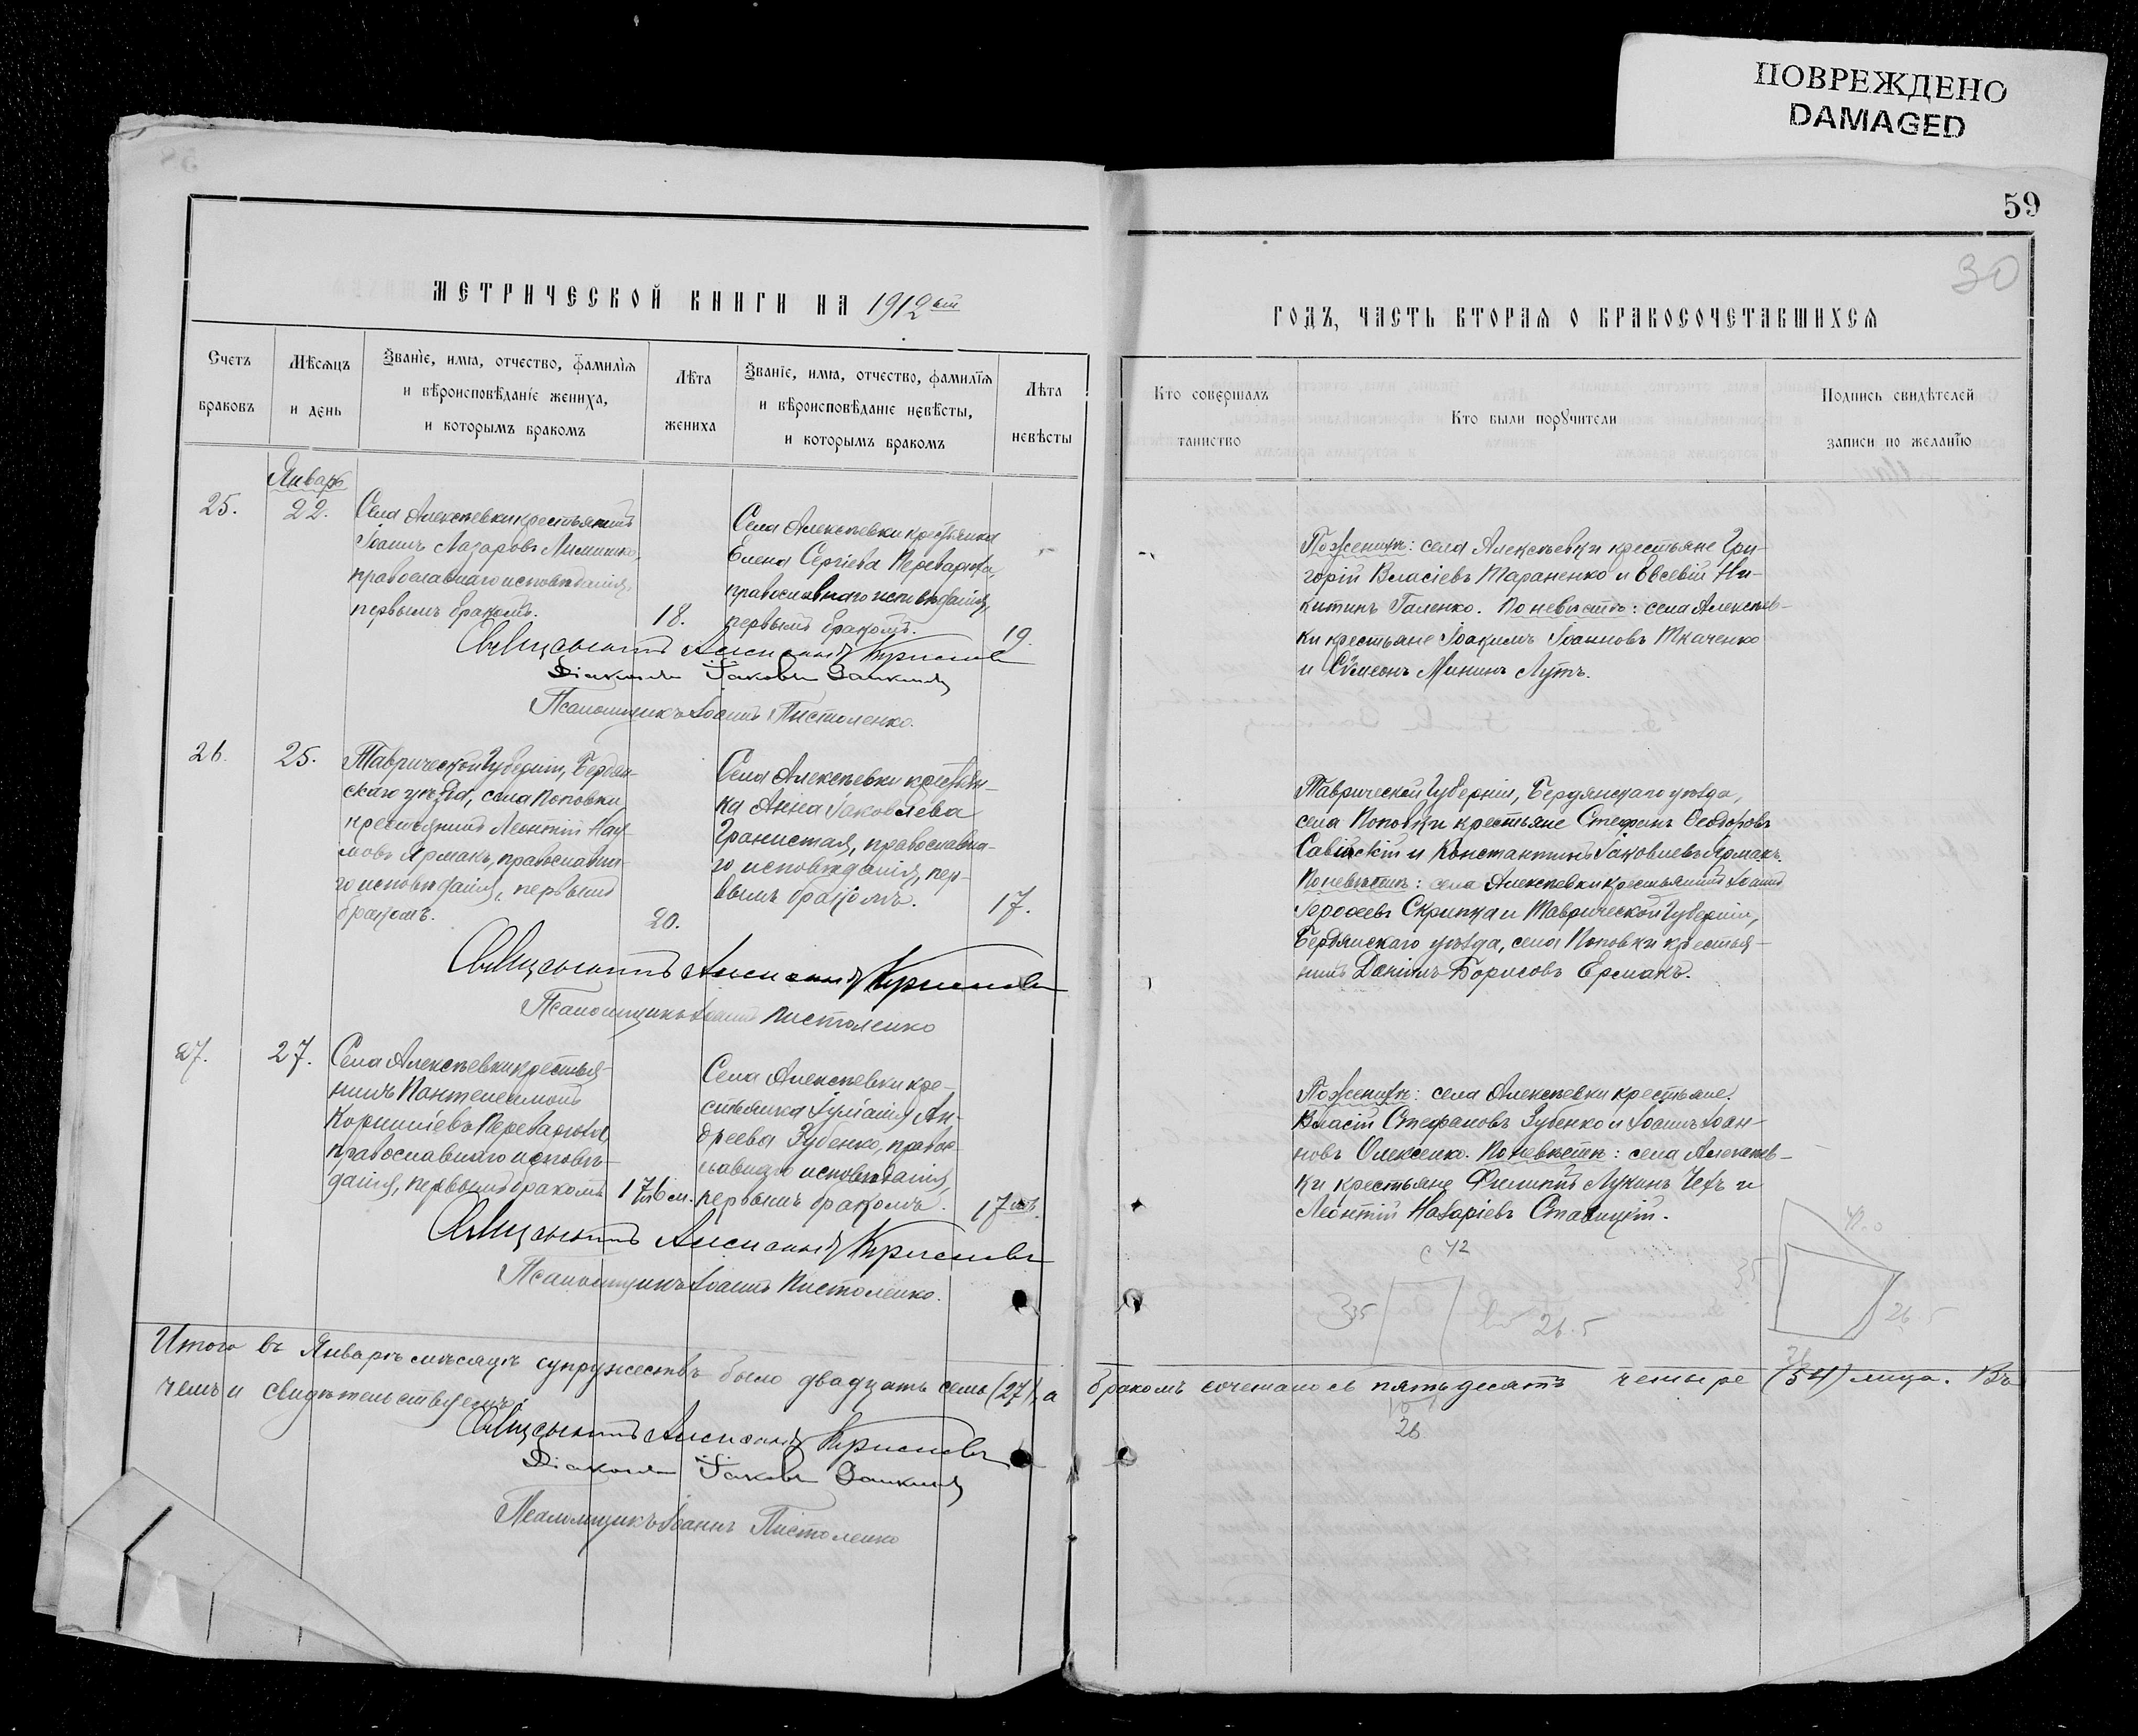 ПОВРЕЖДЕНО
DAMAGED
59
30
МЕТРИЧЕСКОЙ КНИГИ НА 1912ый
ГОДЪ, ЧАСТЬ ВТОРАЯ О БРАКОСОЧЕТАВШИХСЯ
Счетъ браковъ
Мѣсяцъ и день
Званіе, имя, отчество, фамилія
и вѣроисповѣданіе жениха,
и которымъ бракомъ
Лѣта жениха
Званіе, имя, отчество, фамилія
и вѣроисповѣданіе невѣсты,
и которымъ бракомъ
Лѣта невѣсты
Кто совершалъ таинство
Кто были поручители
Подпись свидѣтелей
записи по желанію
Январь
25.
22.
Села Алексѣевки крестьянинъ
Іоаннъ Лазаровъ
православнаго исповѣданія,
первымъ бракомъ.
18.
Села Алексѣевки крестьянка
Елена Сергіева Переварюха,
православнаго исповѣданія,
первымъ бракомъ.
19.
Священникъ
Діаконъ Іаковъ
Псаломщикъ Іоаннъ Пистоленко.
По женихѣ: села Алексѣевки крестьяне Гри-
горій Власіевъ Тараненко и Евсевій Ни-
китинъ Галенко. По невѣстѣ: села Алексѣев-
ки крестьяне Іоакимъ Іоанновъ Ткаченко
и Сѵмеонъ Мининъ Лутъ.
26.
25.
Таврической губерніи, Бердян-
скаго уѣзда, села Поповки,
крестьянинъ Леонтій Нау-
мовъ Ярмакъ, православна-
го исповѣданія, первымъ
бракомъ.
20.
Села Алексѣевки крестьян-
ка Анна Іаковлева
Гранистая, православна-
го исповѣданія, пер-
вымъ бракомъ.
17.
Священникъ
Псаломщикъ Іоаннъ Пистоленко
Таврической губерніи, Бердянскаго уѣзда,
села Поповки крестьяне Стефанъ Ѳеодоровъ
Савинскій и Константинъ Іаковлевъ Ярмакъ.
По невѣстѣ: села Алексѣевки крестьянинъ Іоаннъ
Скрипка и Таврической губерніи,
Бердянскаго уѣзда, села Поповки крестья-
нинъ Даніилъ Борисовъ Ермакъ.
27.
27.
Села Алексѣевки крестья-
нинъ Пантелеимонъ
Корниліевъ Переварюха,
православнаго исповѣ-
данія, первымъ бракомъ
17 л. 6 м.
Села Алексѣевки кре-
стьянка Іуліанія Ан-
дреева Зубенко, право-
славнаго исповѣданія,
первымъ бракомъ.
17 лѣтъ.
Священникъ
Псаломщикъ Іоаннъ Пистоленко.
По женихѣ: села Алексѣевки крестьяне
Власій Стефановъ Зубенко и Іоаннъ Іоан-
новъ Олексенко. По невѣстѣ: села Алексѣев-
ки крестьяне Филиппъ Лукинъ Чехъ и
Леонтій Назаріевъ Ставицкій.
42
335
26.5
42.0
35
26.5
Итого въ Январѣ мѣсяцѣ супружествъ было двадцать семь (27), а бракомъ сочеталось пятьдесятъ четыре (54) лица. Въ
чемъ и свидѣтельствуемъ:
26
Священникъ
Діаконъ Іаковъ
Псаломщикъ Іоаннъ Пистоленко